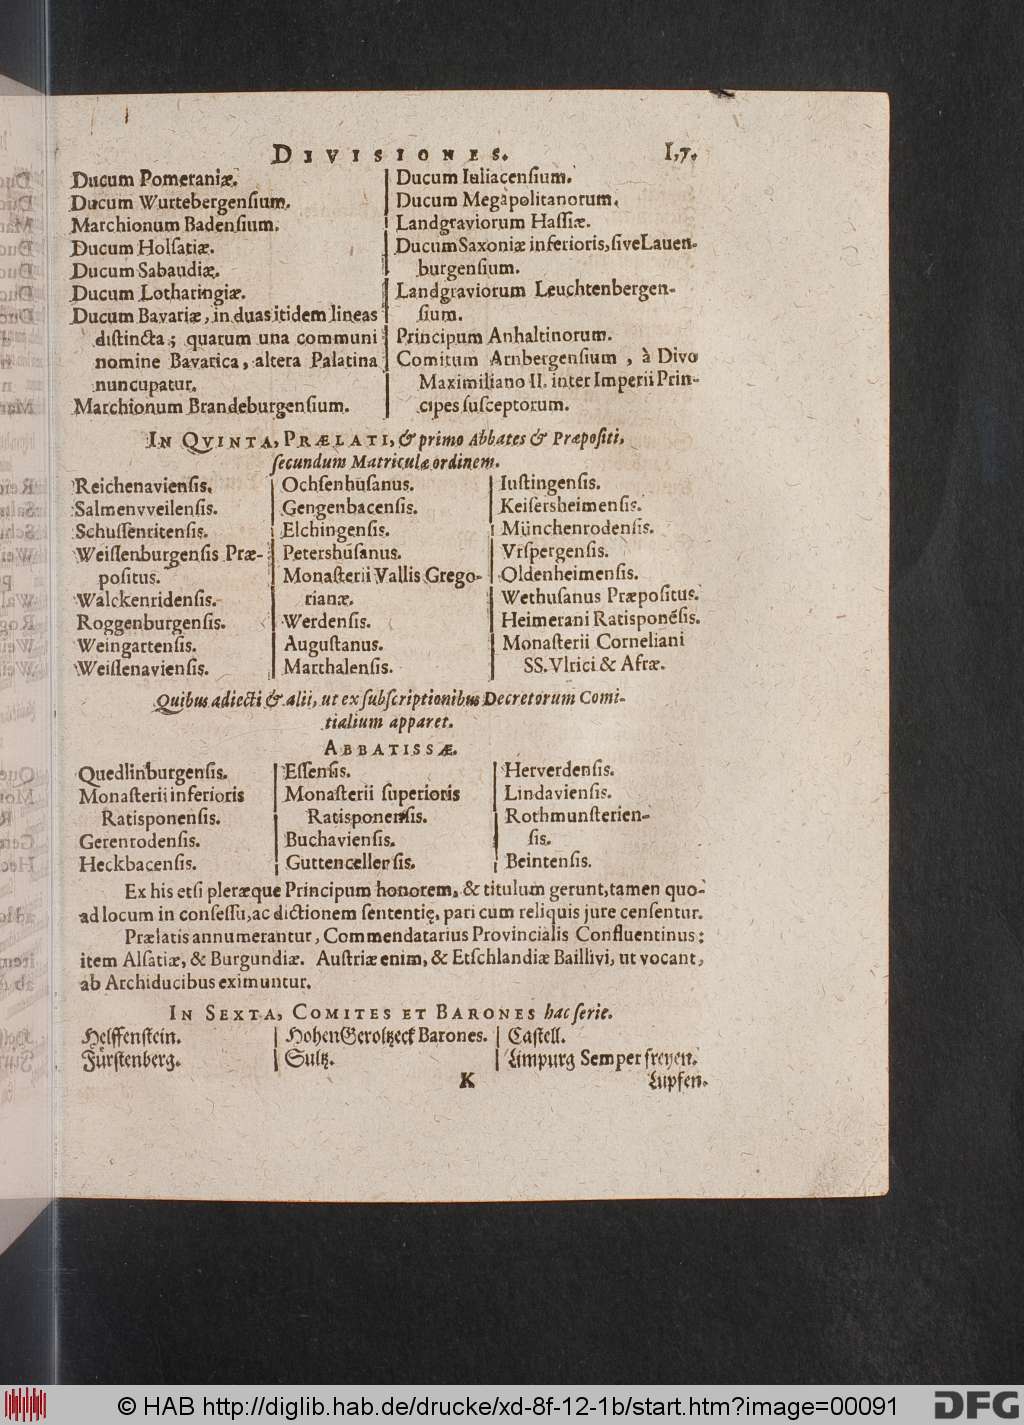 DIVISIONES. I,7.
Ducum Pomeraniæ.
Ducum Wurtebergensium.
Marchionum Badensium.
Ducum Holsatiæ.
Ducum Sabaudiæ.
Ducum Lotharingiæ.
Ducum Bavariæ, in duas itidem lineas
distincta; quarum una communi
nomine Bavarica, altera Palatina
nuncupatur.
Marchionum Brandeburgensium.
Ducum Iuliacensium.
Ducum Megapolitanorum.
Landgraviorum Hassiæ.
Ducum Saxoniæ inferioris, sive Lauen-
burgensium.
Landgraviorum Leuchtenbergen-
sium.
Principum Anhaltinorum.
Comitum Arnbergensium, à Divo
Maximiliano II. inter Imperii Prin-
cipes susceptorum.
IN QVINTA, PRÆLATI, & primo Abbates & Præpositi,
secundum Matriculæ ordinem.
Reichenaviensis.
Salmenvveilensis.
Schussenritensis.
Weissenburgensis Præ-
positus.
Walckenridensis.
Roggenburgensis.
Weingartensis.
Weissenaviensis.
Ochsenhusanus.
Gengenbacensis.
Elchingensis.
Petershusanus.
Monasterii Vallis Grego-
rianæ.
Werdensis.
Augustanus.
Marthalensis.
Iustingensis.
Keisersheimensis.
Münchenrodensis.
Vrspergensis.
Oldenheimensis.
Wethusanus Præpositus.
Heimerani Ratisponẽsis.
Monasterii Corneliani
SS. Vlrici & Afræ.
Quibus adiecti & alii, ut ex subscriptionibus Decretorum Comi-
tialium apparet.
ABBATISSÆ.
Quedlinburgensis.
Monasterii inferioris
Ratisponensis.
Gerenrodensis.
Heckbacensis.
Essensis.
Monasterii superioris
Ratisponensis.
Buchaviensis.
Guttencellensis.
Herverdensis.
Lindaviensis.
Rothmunsterien-
sis.
Beintensis.
Ex his etsi pleræque Principum honorem, & titulum gerunt, tamen quo-
ad locum in consessu, ac dictionem sententię, pari cum reliquis jure censentur.
Prælatis annumerantur, Commendatarius Provincialis Confluentinus:
item Alsatiæ, & Burgundiæ. Austriæ enim, & Etschlandiæ Baillivi, ut vocant,
ab Archiducibus eximuntur.
IN SEXTA, COMITES ET BARONES hac serie.
Helffenstein.
Fürstenberg.
HohenGeroltzeck Barones.
Sultz.
Castell.
Limpurg Semper freyen.
K Lupfen.
© HAB http://diglib.hab.de/drucke/xd-8f-12-1b/start.htm?image=00091
DFG